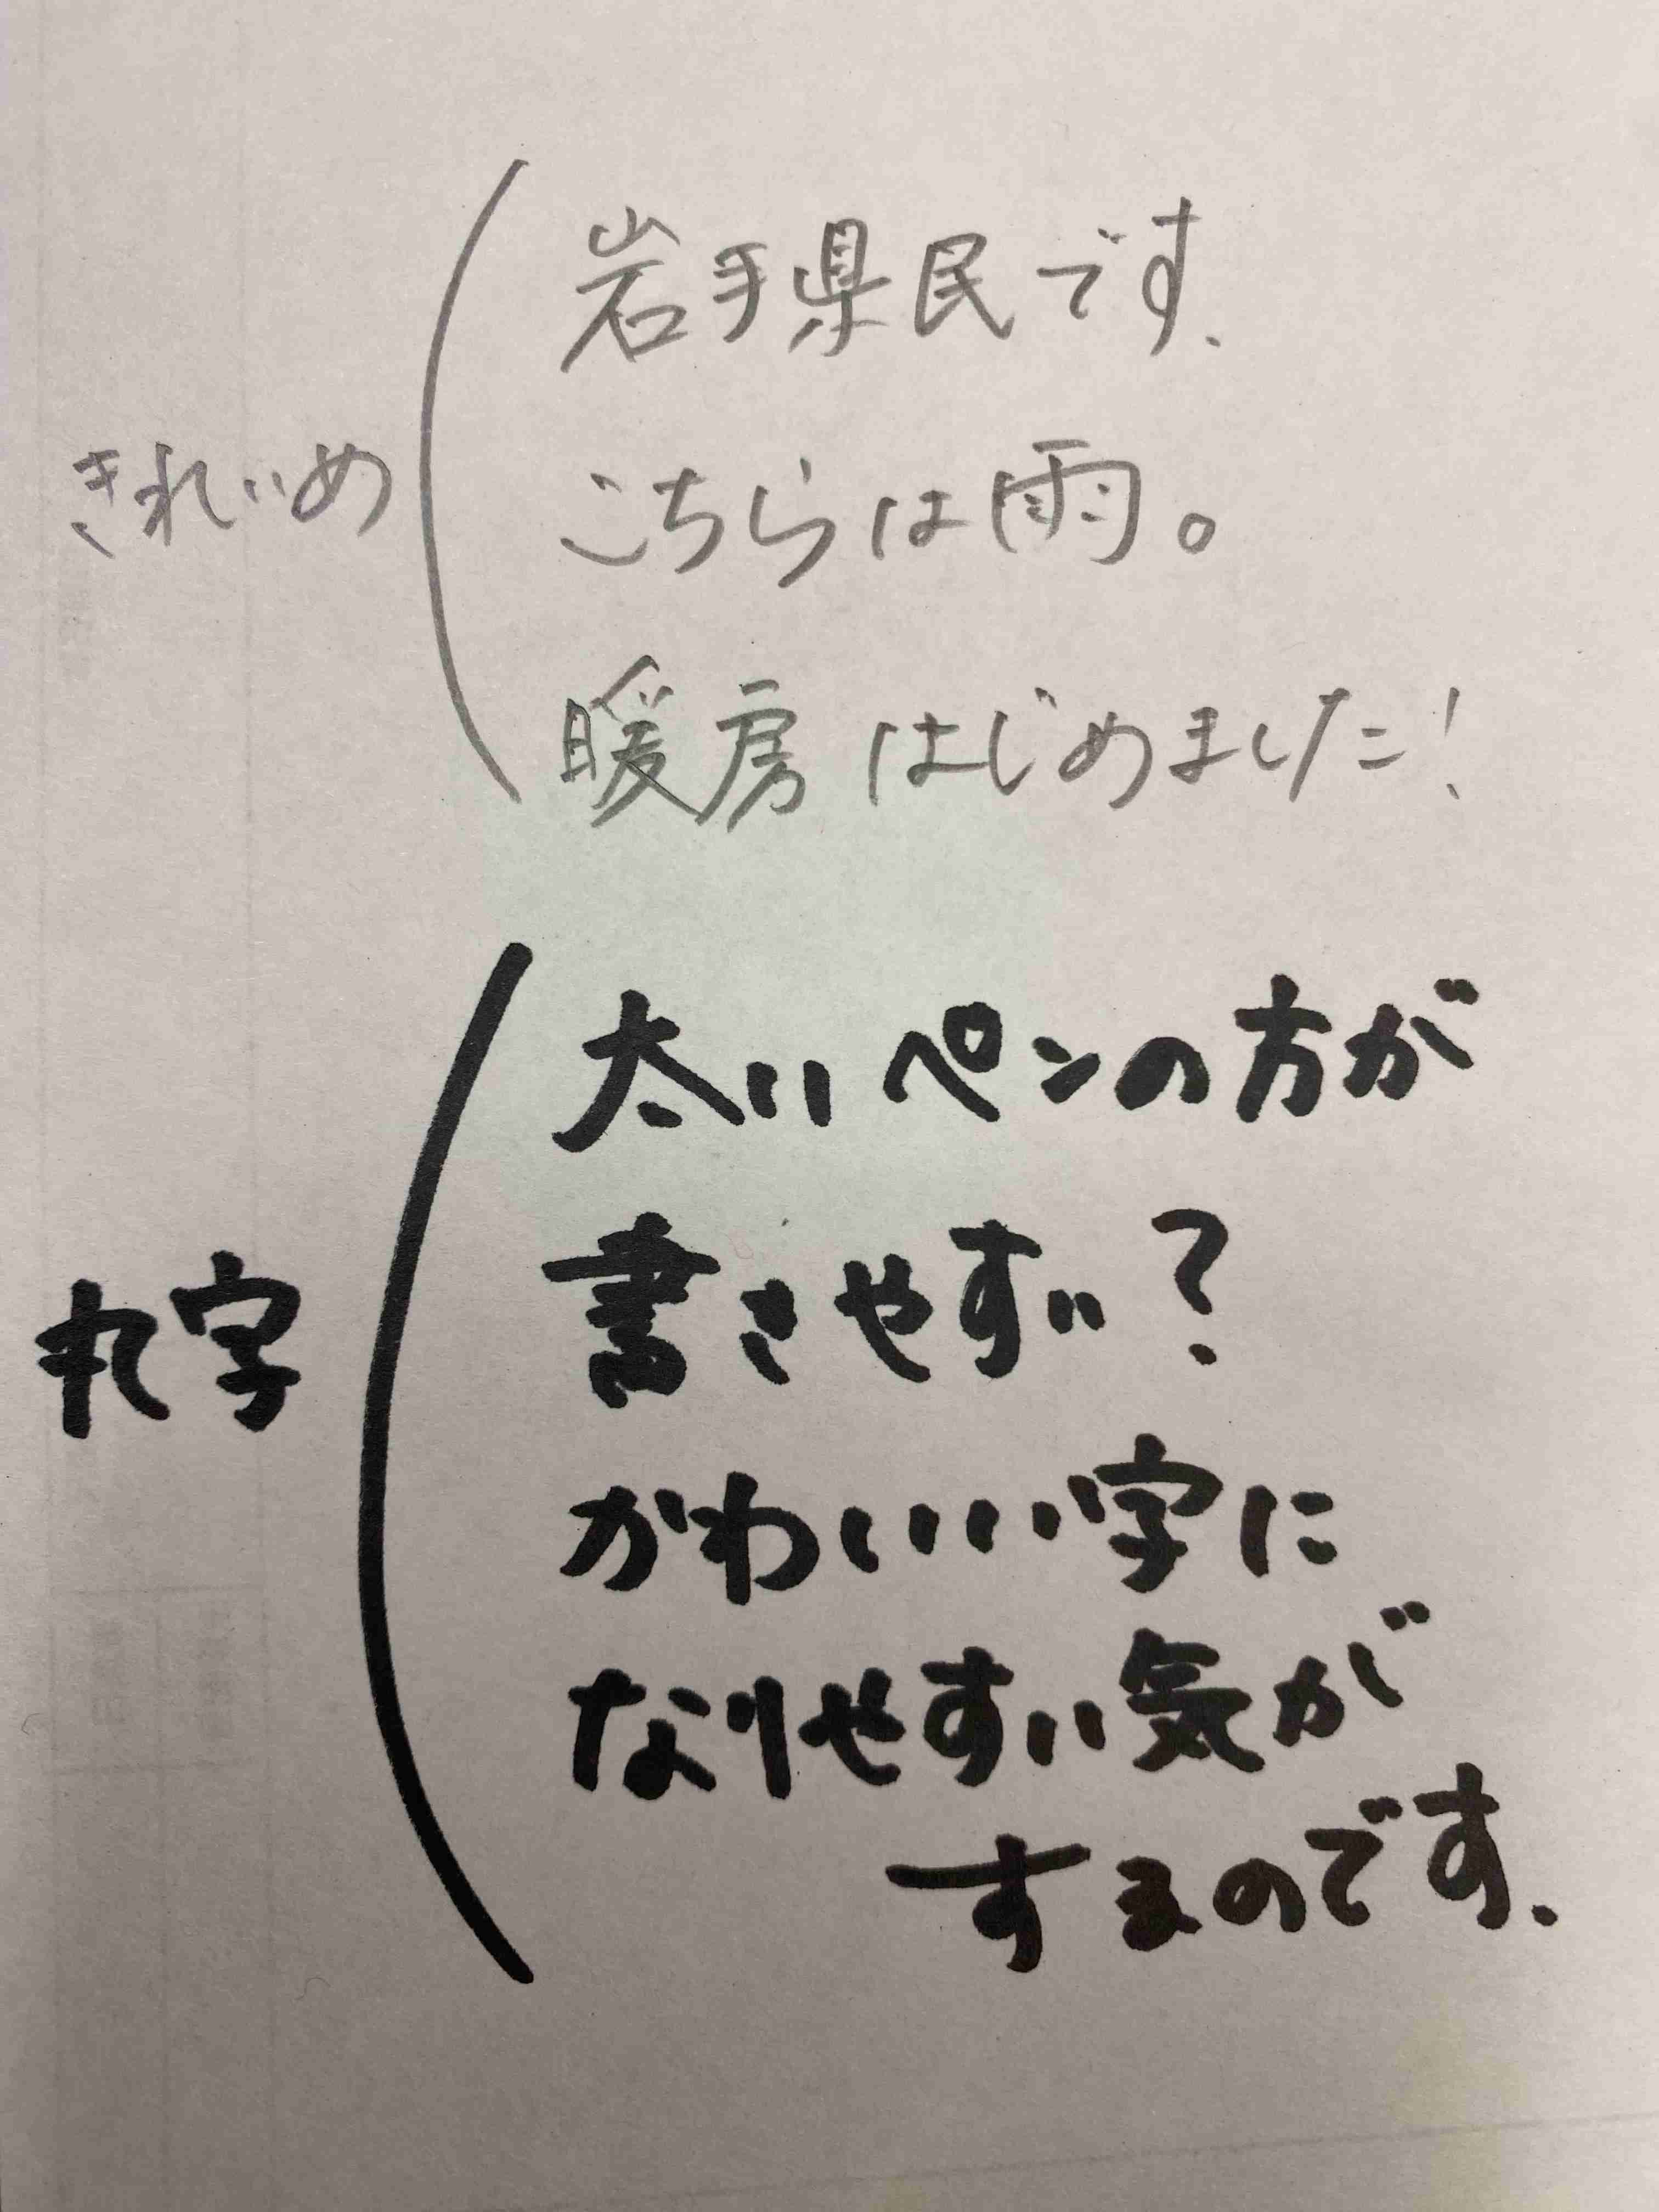 きれいめ
岩手県民です.
こちらは雨。
暖房はじめました!
丸字
太いペンの方が
書きやすい?
かわいい字に
なりやすい気が
するのです.